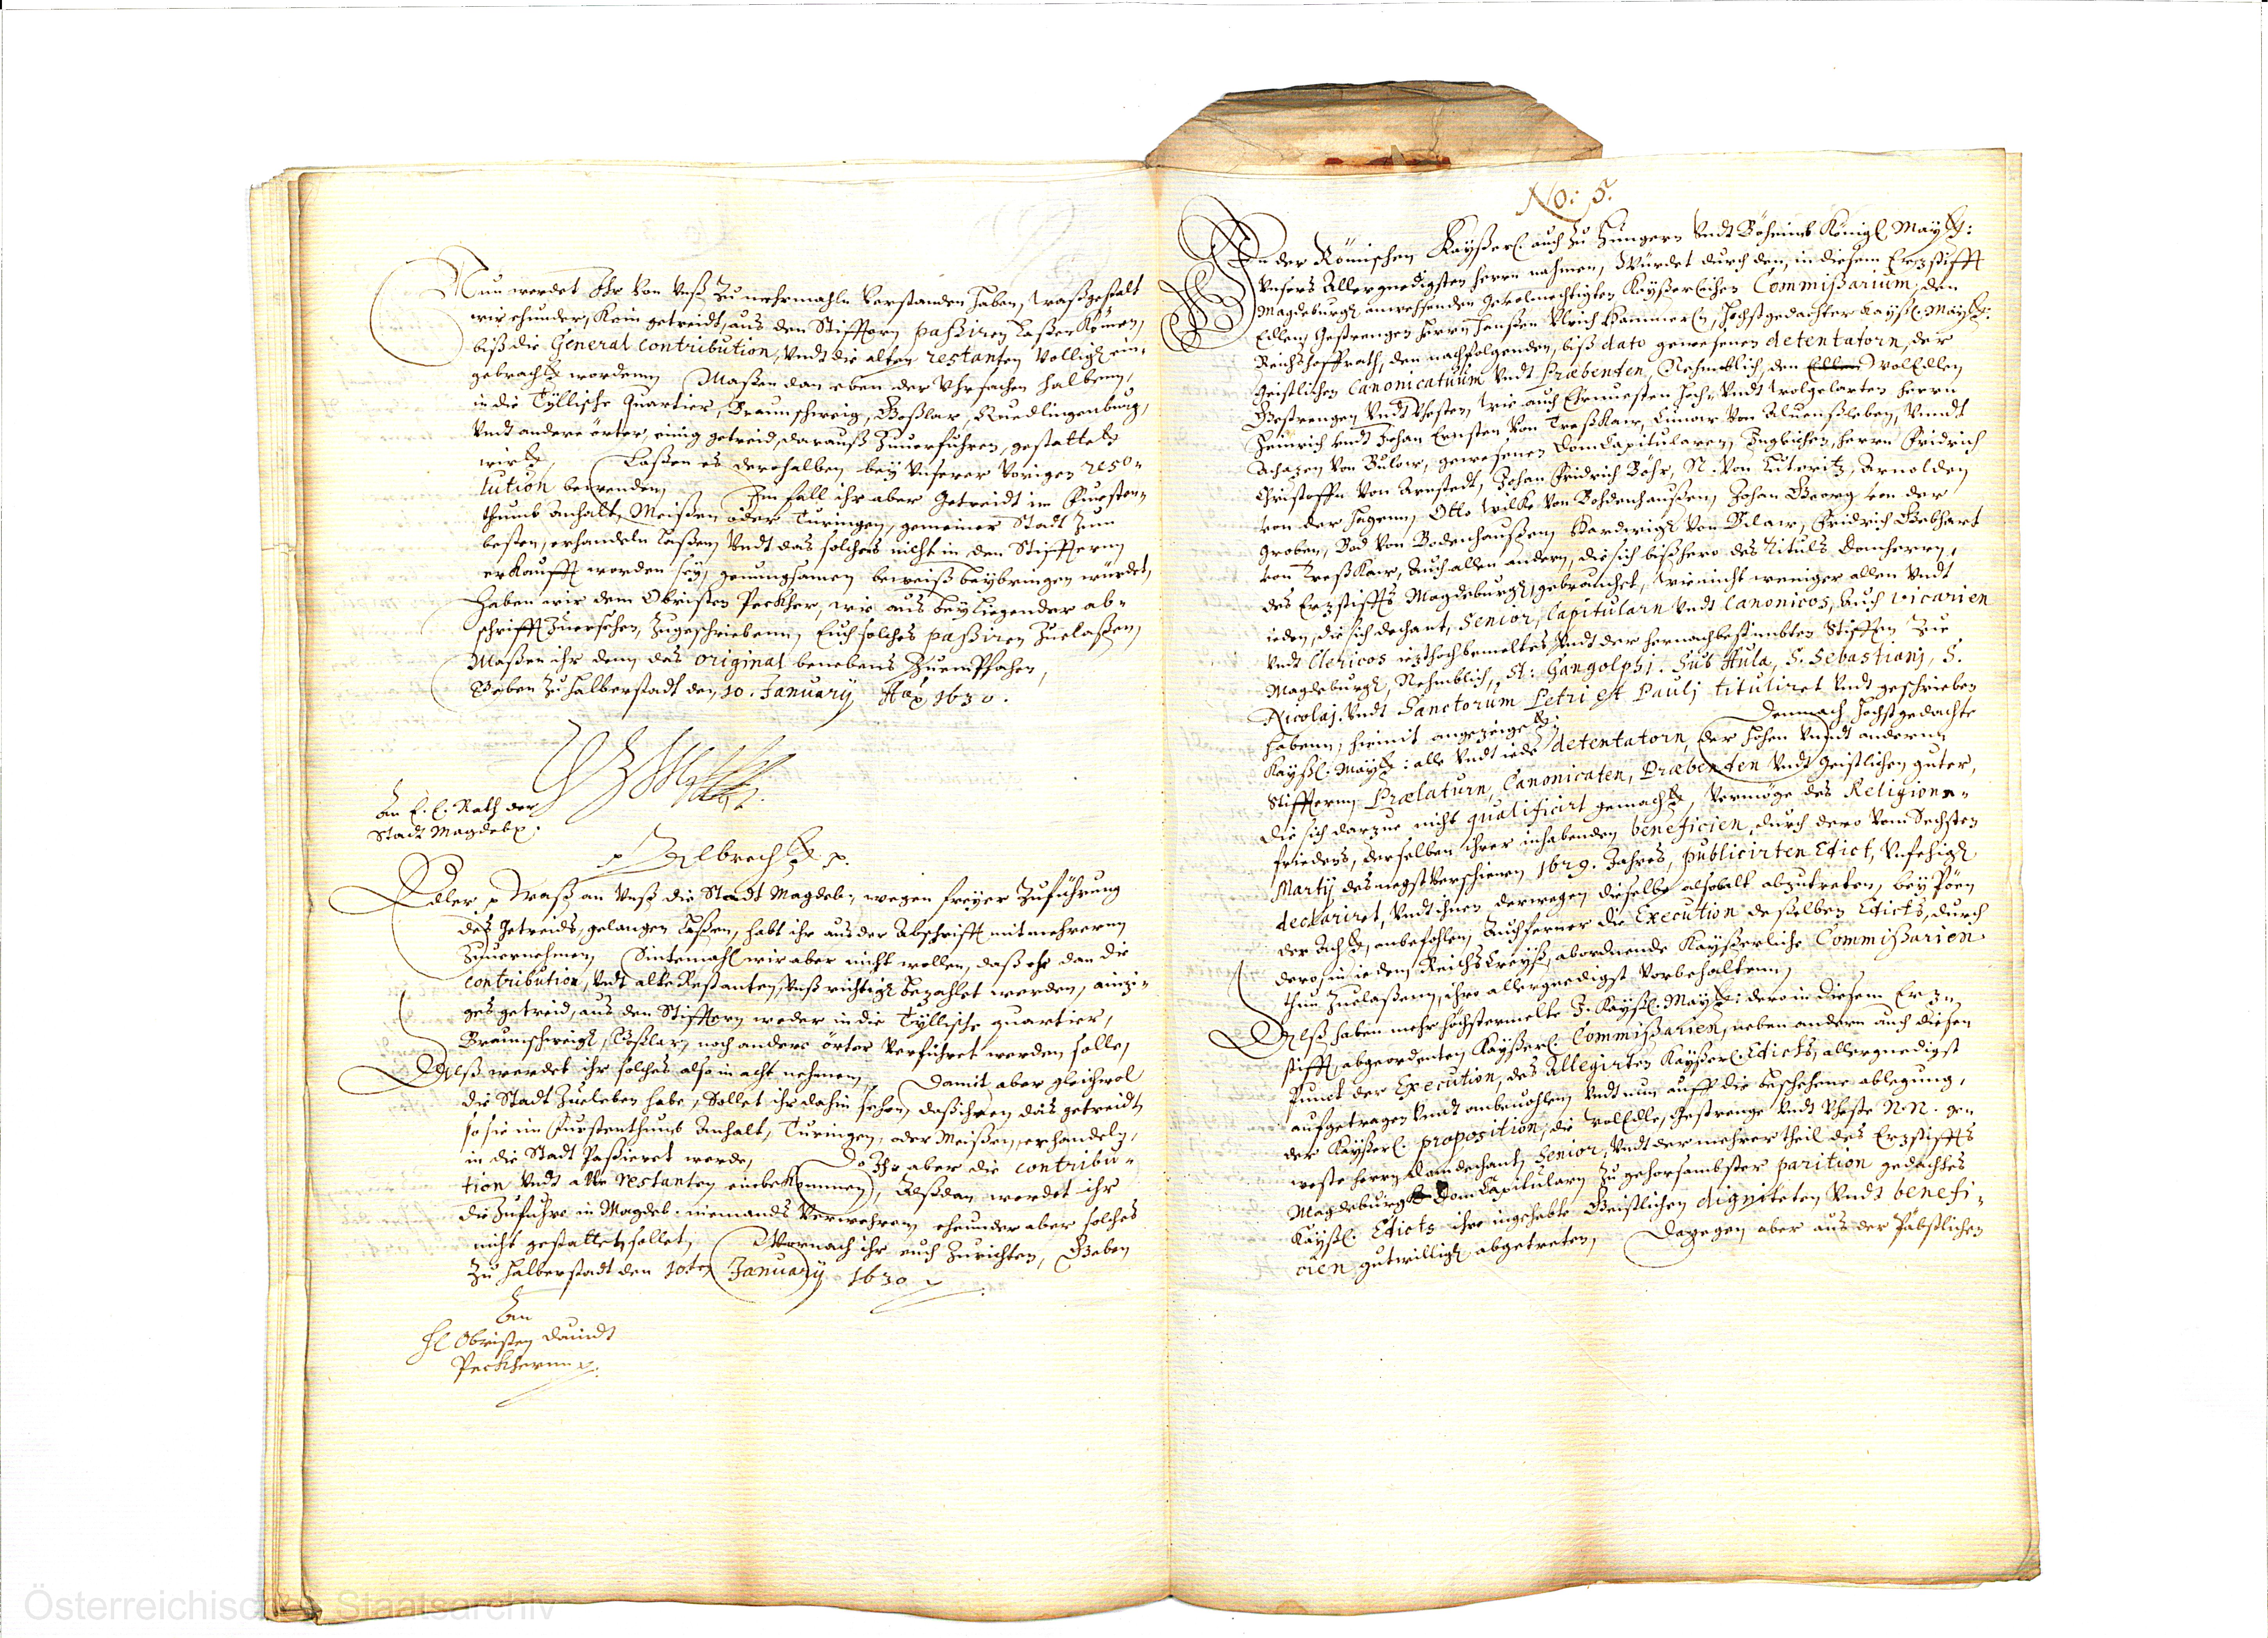 Nun werdet Ihr von Unß zu mehrmahln verstanden haben, waßgestalt
wir ehunder, Kein getreidt, aus den Stifftern paßiren laßen Können,
biß die General Contribution, Undt die alten restanten völlig ein-
gebracht wordenn, Maßen dan eben der Uhrsachen halbenn,
in die Tyllische Quartier, Braunschweig, Goßlar, Quedlingenburg,
Undt andere örter, einig getreid, darauß Zuuerfuhren, gestattet
wirdt, Laßen es derohalben bey Unserer Vorigen reso-
lution bewenden, Im fall ihr aber Getreidt im Fursten-
thumb Anhalt, Meißen oder Turingen, gemeiner Stadt zum
besten, erhandeln laßen, Undt das solches nicht in den Stifftern
erkaufft worden sey, genungsamen beweiß beybringen würdet,
haben wir dem Obristen Peckher, wie aus beyliegender ab-
schrifft Zuersehen, Zugeschriebenn, Euch solches paßiren Zuelaßen,
Maßen ihr dem das original benebens Zuempfahen,
Geben Zu Halberstadt den 10. January Ao 1630.
An E. E. Rath der
Stadt Magdeb.
Albrecht p.
Edler p Waß an Unß die Stadt Magdeb. wegen freyer Zuführung
des Getreids, gelangen laßen, habt ihr aus der Abschrifft mit mehrerm
Zuuernehmen, Sintemahl wir aber nicht wollen, daß ehe dan die
Contribution, Undt alte Restanten, Unß richtig bezahlet werden, ainzi-
ges getreid, aus den Stifftern weder in die Tyllische quartier,
Braunschweig, Goßlar, noch andere örter Verführet werden solle,
Alß werdet ihr solches also in acht nehmen, Damit aber gleichwol
die Stadt Zueleben habe, Sollet ihr dahin sehen, daß ihnen das getreidt,
so sie im Furstenthumb Anhalt, Turingen, oder Meißen, erhandeln,
in die Stadt Paßieret werde, Da Ihr aber die Contribu-
tion Undt alte restanten einbekommen, Alßdan werdet ihr
die Zufuhre in Magdeb. niemands Verwehren, ehunder aber solches
nicht gestatten sollet, Wornach ihr euch Zurichten, Geben
Zu Halberstadt den 10ten January 1630
An
H Obristen Dauidt
Peckhern p.
No: 5.
In der Römischen Kayßerl. auch zu Hungern Undt Böheimb Königl. Maytt:
Unsers Allergnedigsten Herrn nahmen, Würdet durch den, in diesem Erzstifft
Magdeburg anwesenden Geuolmechtigten Kayßerlichen Commißarium, den
Edlen, Gestrengen Herrn Hanßen Ulrich Hämmerln, Höchstgedachter Kayßl. Maytt:
Reichshoffrath, den nachfolgenden, biß dato gewesenen detentatorn, der
Geistlichen Canonicatuum Undt Præbenden, Nehmblich, den Edlen wolEdlen
Gestrengen Undt Vhesten, wie auch Ehrnuesten Hoch- Undt wolgelarten Herrn
Heinrich Undt Johan Ernsten von Treßkaw, Cunow von Aluenßleben, Unndt
Achazen von Bulow, gewesenen DomCapitularen, Ingleichen, Herrn Fridrich
Christoffen von Arnstedt, Johan Fridrich Böhr, N. von Luteritz, Arnolden
von der Hagenn, Otto Wilke von Bohdenhaußen, Johan Georg von der
Groben, Bod von Bodenhaußen, Hardwig von Bilaw, Fridrich Gebhart
von Treßkaw, Auch allen andern, die sich bißhero des Tituls Domherrn,
des Erzstiffts Magdeburg, gebrauchet, Wie nicht weniger allen Undt
ieden, die sich dechant, Senior, Capitularn Undt Canonicos, Auch Vicarien
Undt Clericos iezthochbemeltes Undt der hernachbestimbten Stifften Zue
Magdeburg, Nehmblich, St: Gangolphi. Sub Aula, S. Sebastianj, S.
Nicolaj. Undt Sanctorum Petri et Paulj tituliret Undt geschrieben
habenn, hiemit angezeiget; Demnach höchstgedachte
Kayßl. Maytt: alle Undt iede detentatorn, der hohen Unndt andernn
Stifftern, Prælaturn, Canonicaten, Præbenden Undt Geistlichen guter,
die sich darzue nicht qualificirt gemacht, Vermöge des Religions-
friedens, derselben ihrer inhabenden beneficien, durch dero vom Sechsten
Martij des negst Verschienen 1629. Jahres, publicirten Edict, Unfehig
declariret, Undt ihnen derwegen dieselbe alsobalt abzutreten, bey Pöen
der Acht, anbefohlen, Auch ferner die Execution deßelben Edicts, durch
dero, in iedem Reichs Creyß, abordnende Kayßerliche Commißarien
thun Zuelaßenn, ihro allergnedigst Vorbehaltenn,
Alß haben mehr höchstermelte J. Kayßl. Maytt: dero in diesem Erz-
stifft, abgeordenten Kayßerl. Commißarien, neben andern auch diesen
Punct der Execution, des Allegirten Kayßerl. Edicts, allergnedigst
aufgetragen Unndt anbeuohlen, Undt nun auff die beschehene ablegung,
der Kayßerl. proposition, die wolEdle, Gestrenge Undt Vheste N.N. ge-
weste Herrn Domdechant, Senior, Undt der mehrer theil des Erzstiffts
Magdeburg DomCapitularn Zu gehorsambster parition gedachtes
Kayßl. Edicts ihre ingehabte Geistlichen digniteten Undt benefi-
cien gutwillig abgetreten, Dagegen aber aus der Päbstlichen
Österreichisches Staatsarchiv